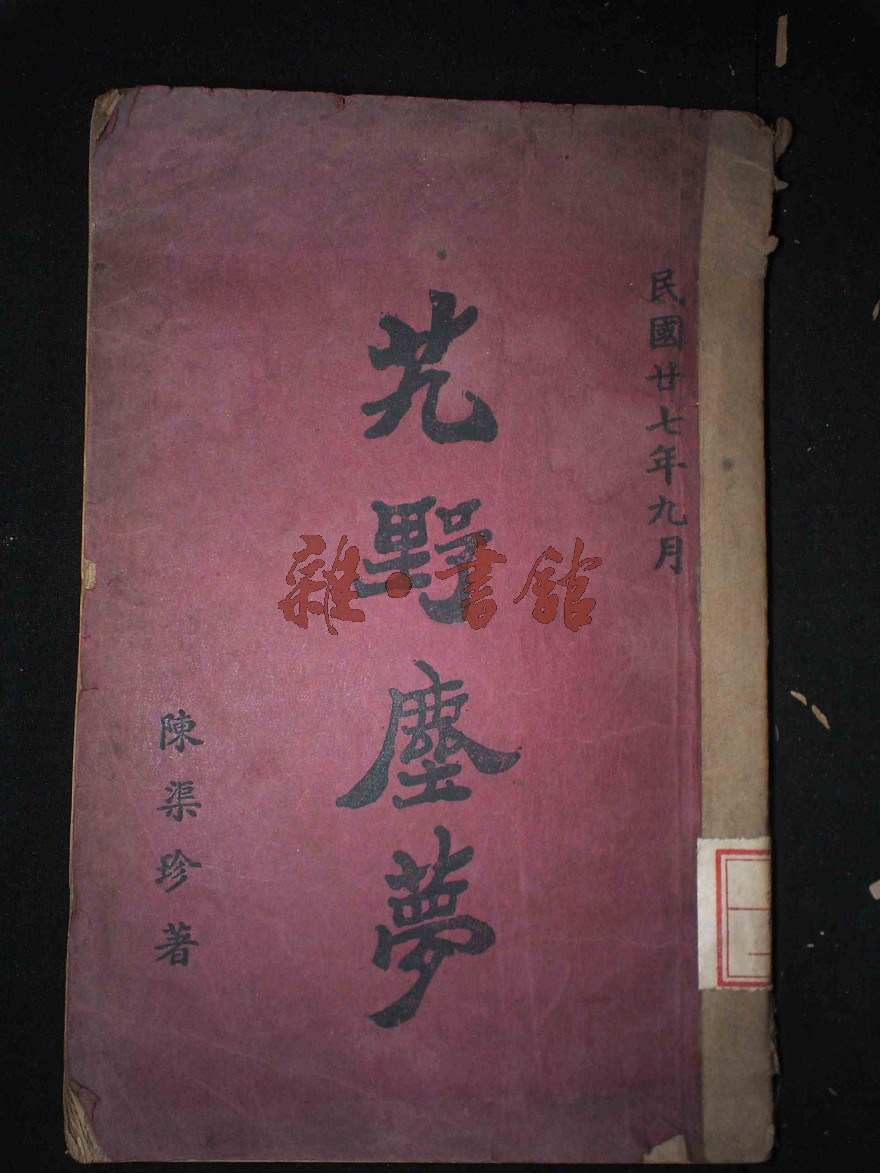 民國廿七年九月
艽野塵夢
陳渠珍著
雜·書館